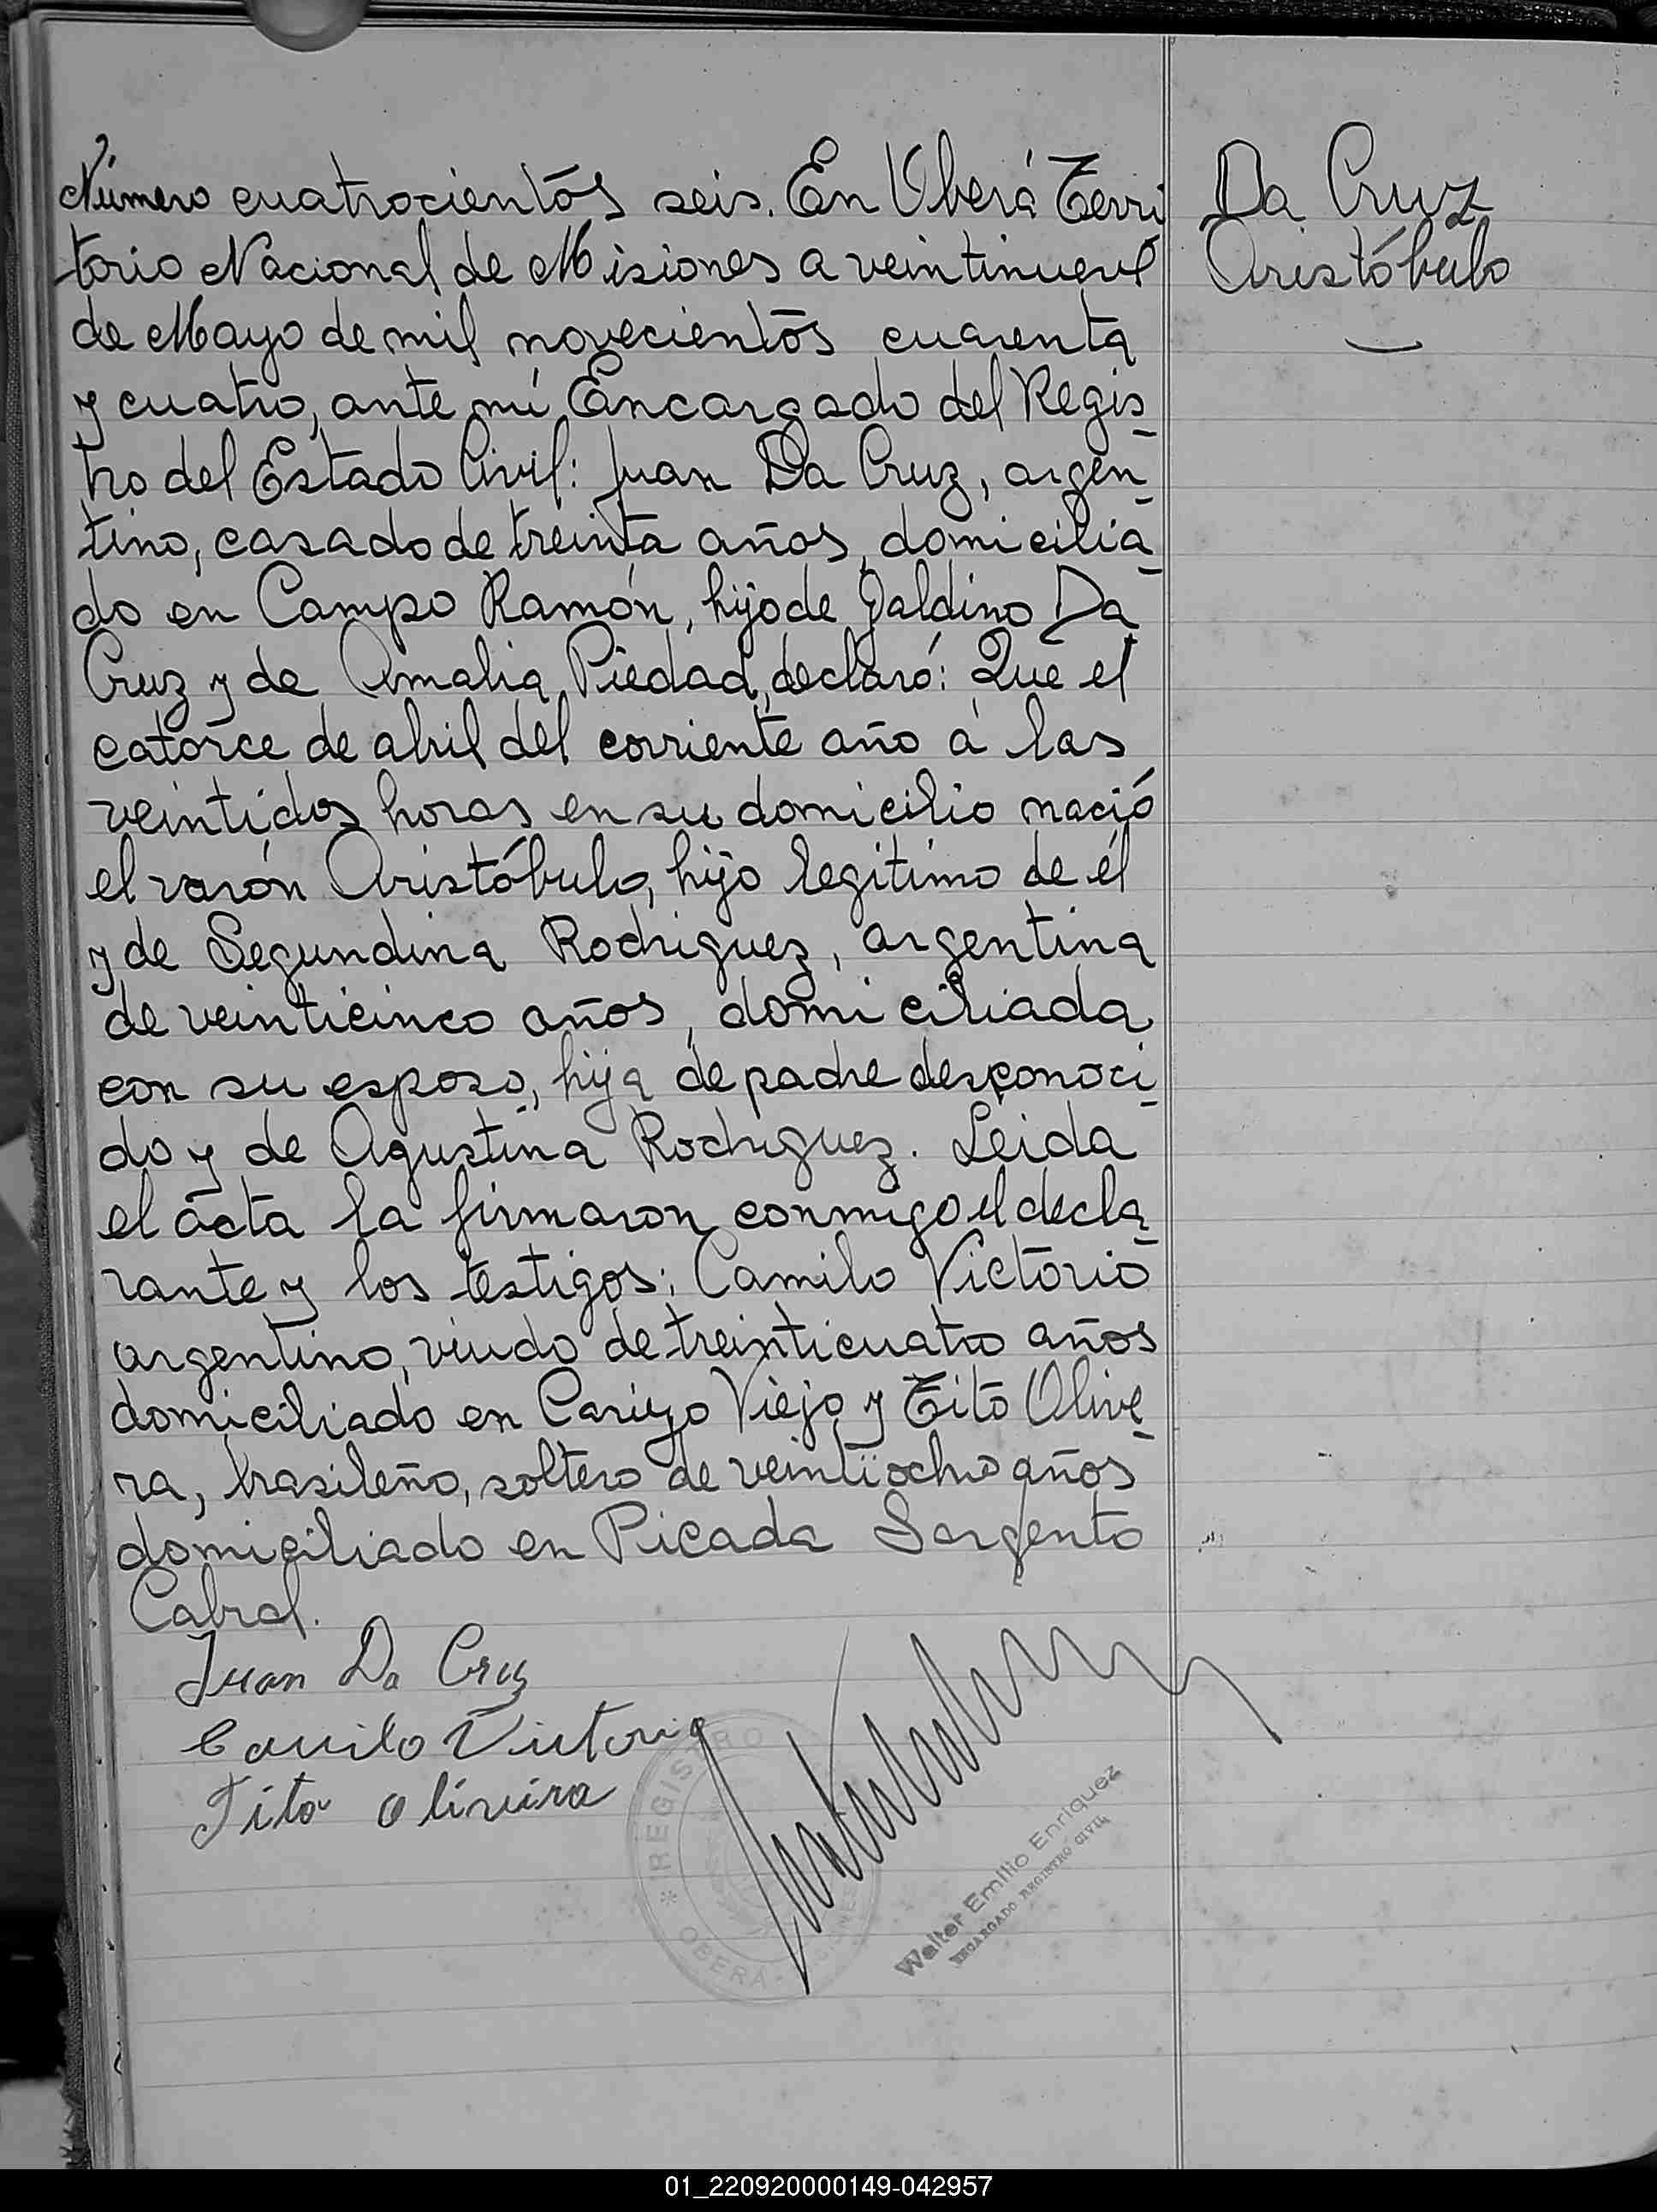 Número cuatrocientos seis. En Oberá Terri
torio Nacional de Misiones a veintinueve
de Mayo de mil novecientos cuarenta
y cuatro, ante mí Encargado del Regis-
tro del Estado Civil: Juan Da Cruz, argen-
tino, casado de treinta años, domicilia-
do en Campo Ramón, hijo de Galdino Da
Cruz y de Amalia Piedad, declaró: Que el
catorce de abril del corriente año a las
veintidos horas en su domicilio nació
el varón Aristóbulo, hijo legitimo de él
y de Segundina Rodriguez, argentina
de veinticinco años, domiciliada
con su esposo, hija de padre desconoci-
do y de Agustina Rodriguez. Leida
el acta la firmaron conmigo el decla-
rante y los testigos: Camilo Victorio
argentino, viudo de treinticuatro años
domiciliado en Viejo y Tito Olive-
ra, brasileño, soltero de veintiocho años
domiciliado en Picada Sargento
Cabral.
Da Cruz
Aristóbulo
Juan Da Cruz
Camilo Victorio
Tito Oliveira
REGISTRO
OBERÁ - MISIONES
Walter Emilio Enriquez
ENCARGADO REGISTRO CIVIL
01_220920000149-042957